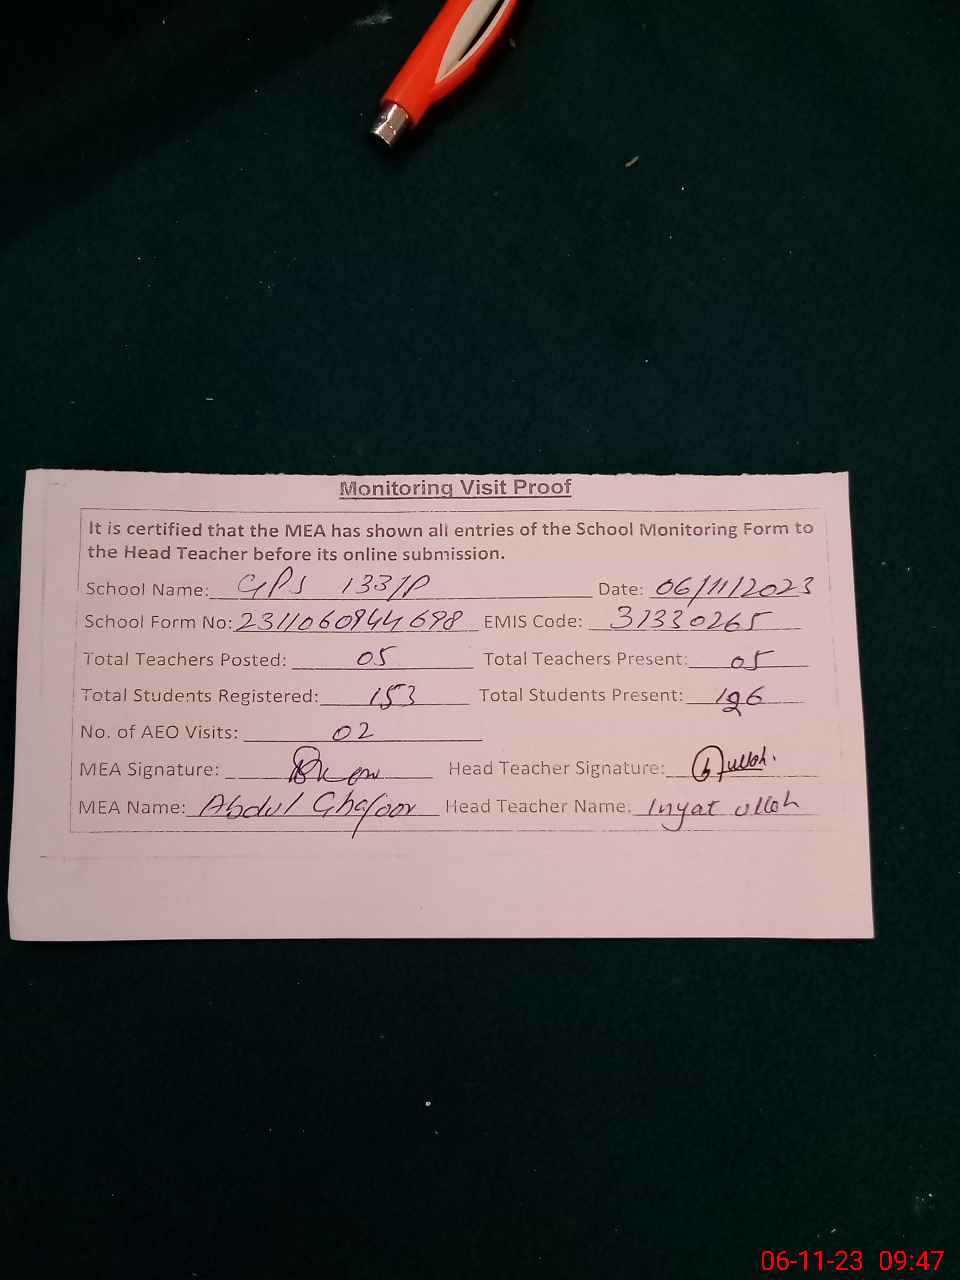 Monitoring Visit Proof
It is certified that the MEA has shown all entries of the School Monitoring Form to
the Head Teacher before its online submission.
School Name: GPS 133/P Date: 06/11/2023
School Form No: 2311060944698 EMIS Code: 31330265
Total Teachers Posted: 05 Total Teachers Present: 05
Total Students Registered: 153 Total Students Present: 126
No. of AEO Visits: 02
MEA Signature: Head Teacher Signature:
MEA Name: Abdul Ghafoor Head Teacher Name: Inyat ullah
06-11-23 09:47